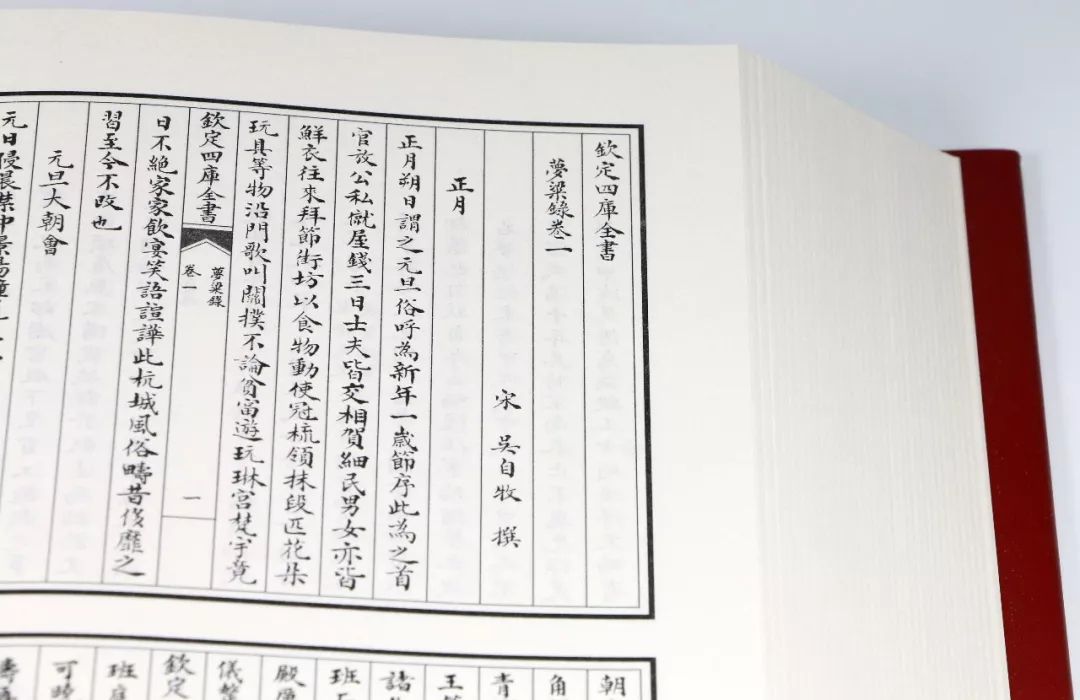 欽定四庫全書
夢粱錄卷二
宋 吳自牧 撰
正月
正月朔日謂之元旦俗呼為新年一歳節序此為之首
官放公私僦屋錢三日士夫皆交相賀細民男女亦皆
鮮衣往來拜節街坊以食物動使冠梳領抹段匹花朵
玩具等物沿門歌叫關撲不論貧富遊玩琳宫梵宇竟
欽定四庫全書
夢粱錄
卷一
一
日不絶家家飲宴笑語諠譁此杭城風俗疇昔侈靡之
習至今不改也
元旦大朝會
元日侵晨禁中景陽鐘
朝
角
青
王
諸
班
殿
儀
欽定
班
可